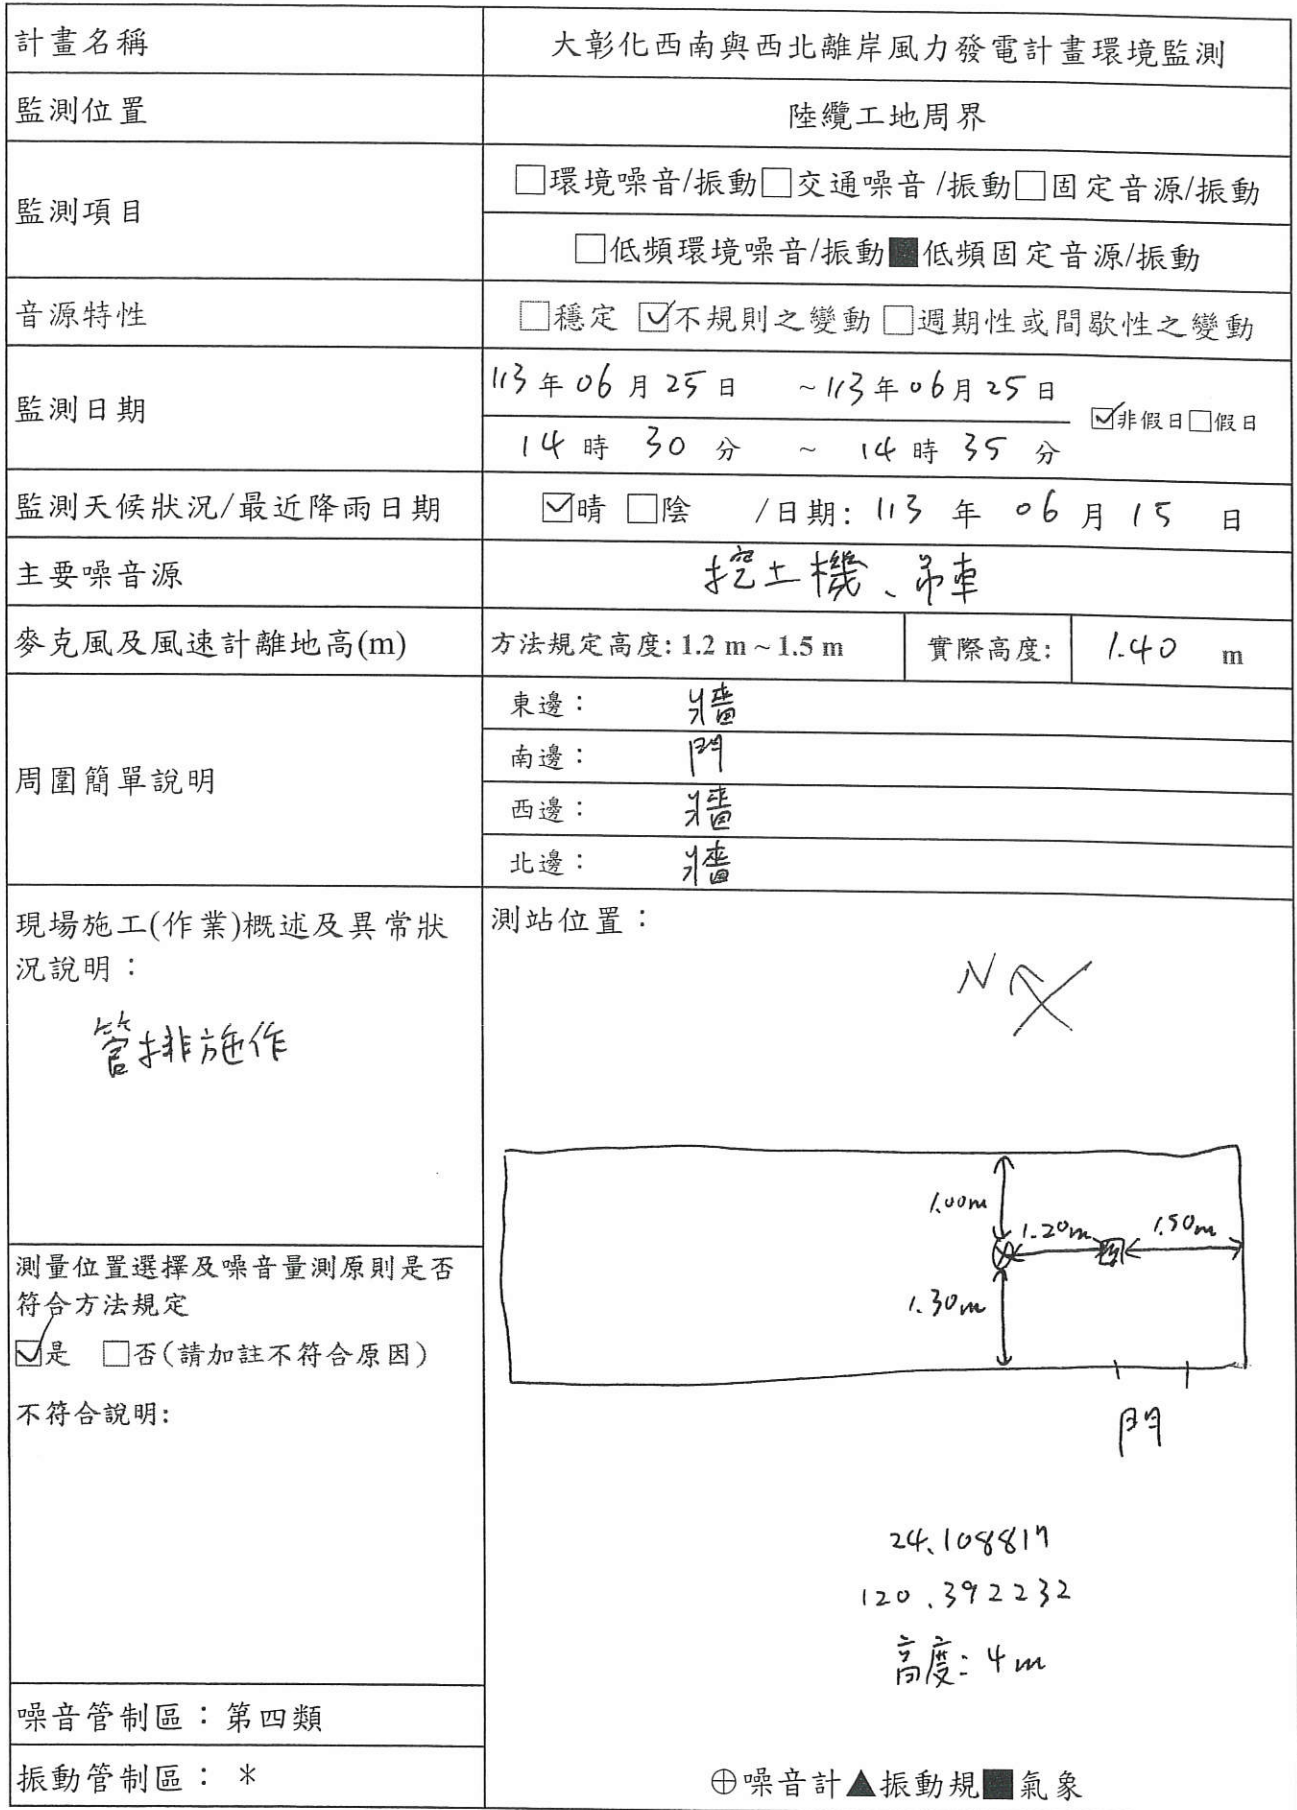 計畫名稱 大彰化西南與西北離岸風力發電計畫環境監測
監測位置 陸纜工地周界
監測項目 □環境噪音/振動□交通噪音 /振動□固定音源/振動
□低頻環境噪音/振動■低頻固定音源/振動
音源特性 □穩定 ☑不規則之變動 □週期性或間歇性之變動
監測日期 113年06月25日 ~113年06月25日
14時 30分 ~ 14時 35分 ☑非假日□假日
監測天候狀況/最近降雨日期 ☑晴 □陰 /日期: 113 年 06 月 15 日
主要噪音源 挖土機、吊車
麥克風及風速計離地高(m) 方法規定高度: 1.2 m ~ 1.5 m 實際高度: 1.40 m
周圍簡單說明
東邊: 牆
南邊: 門
西邊: 牆
北邊: 牆
現場施工(作業)概述及異常狀
況說明:
管排施作
測量位置選擇及噪音量測原則是否
符合方法規定
☑是 □否(請加註不符合原因)
不符合說明:
噪音管制區:第四類
振動管制區: *
測站位置:
N
1.00m
1.20m
1.50m
1.30m
門
24.108817
120.392232
高度: 4m
⊕噪音計▲振動規■氣象